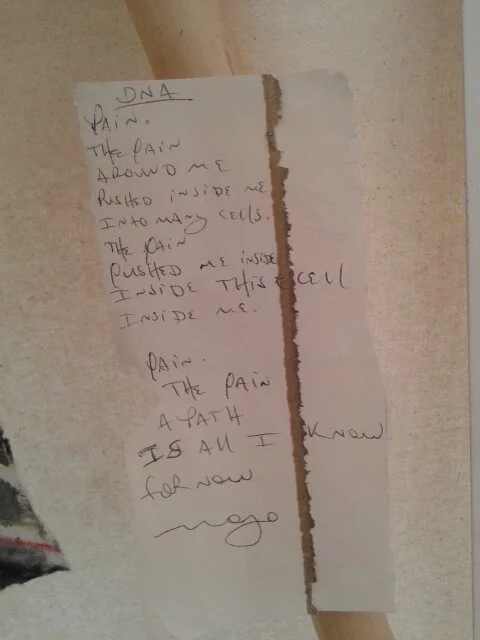 DNA
PAIN.
THE PAIN
AROUND ME
PUSHED INSIDE ME
INTO MANY CELLS.
THE PAIN
PUSHED ME INSIDE
INSIDE THIS CELL
INSIDE ME.
PAIN.
THE PAIN
A PATH
IS All I KNOW
FOR NOW
mojo